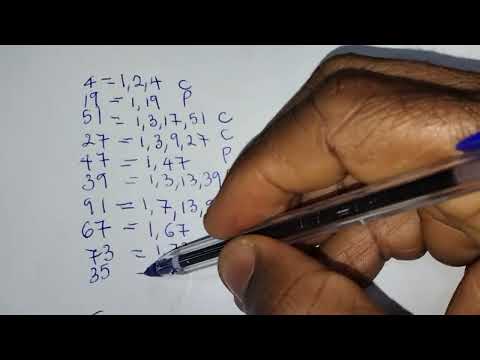 4 = 1, 2, 4 C
19 = 1, 19 P
51 = 1, 3, 17, 51 C
27 = 1, 3, 9, 27 C
47 = 1, 47 P
39 = 1, 3, 13, 39
91 = 1, 7, 13,
67 = 1, 67
73 = 1,
35